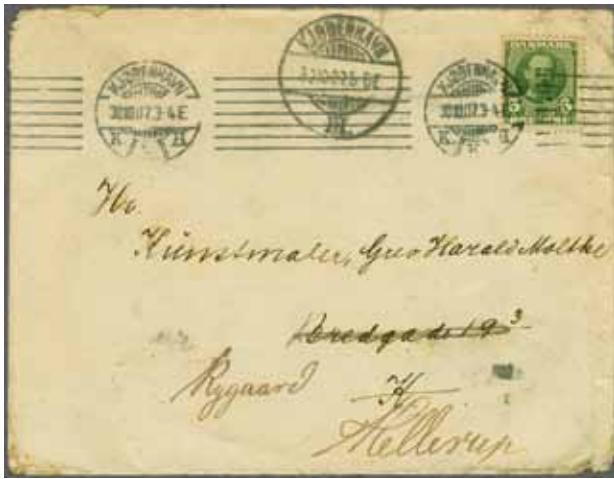 KJØBENHAVN
30.10.07.3-4E
K
KJØBENHAVN
30.10.07.5-6E
KJØBENHAVN
30.10.07.3-4E
K
DANMARK
5 5
Hr.
Kunstmaler, Grev Harald Moltke
Bredgade 19 3
Rygaard
K
Hellerup